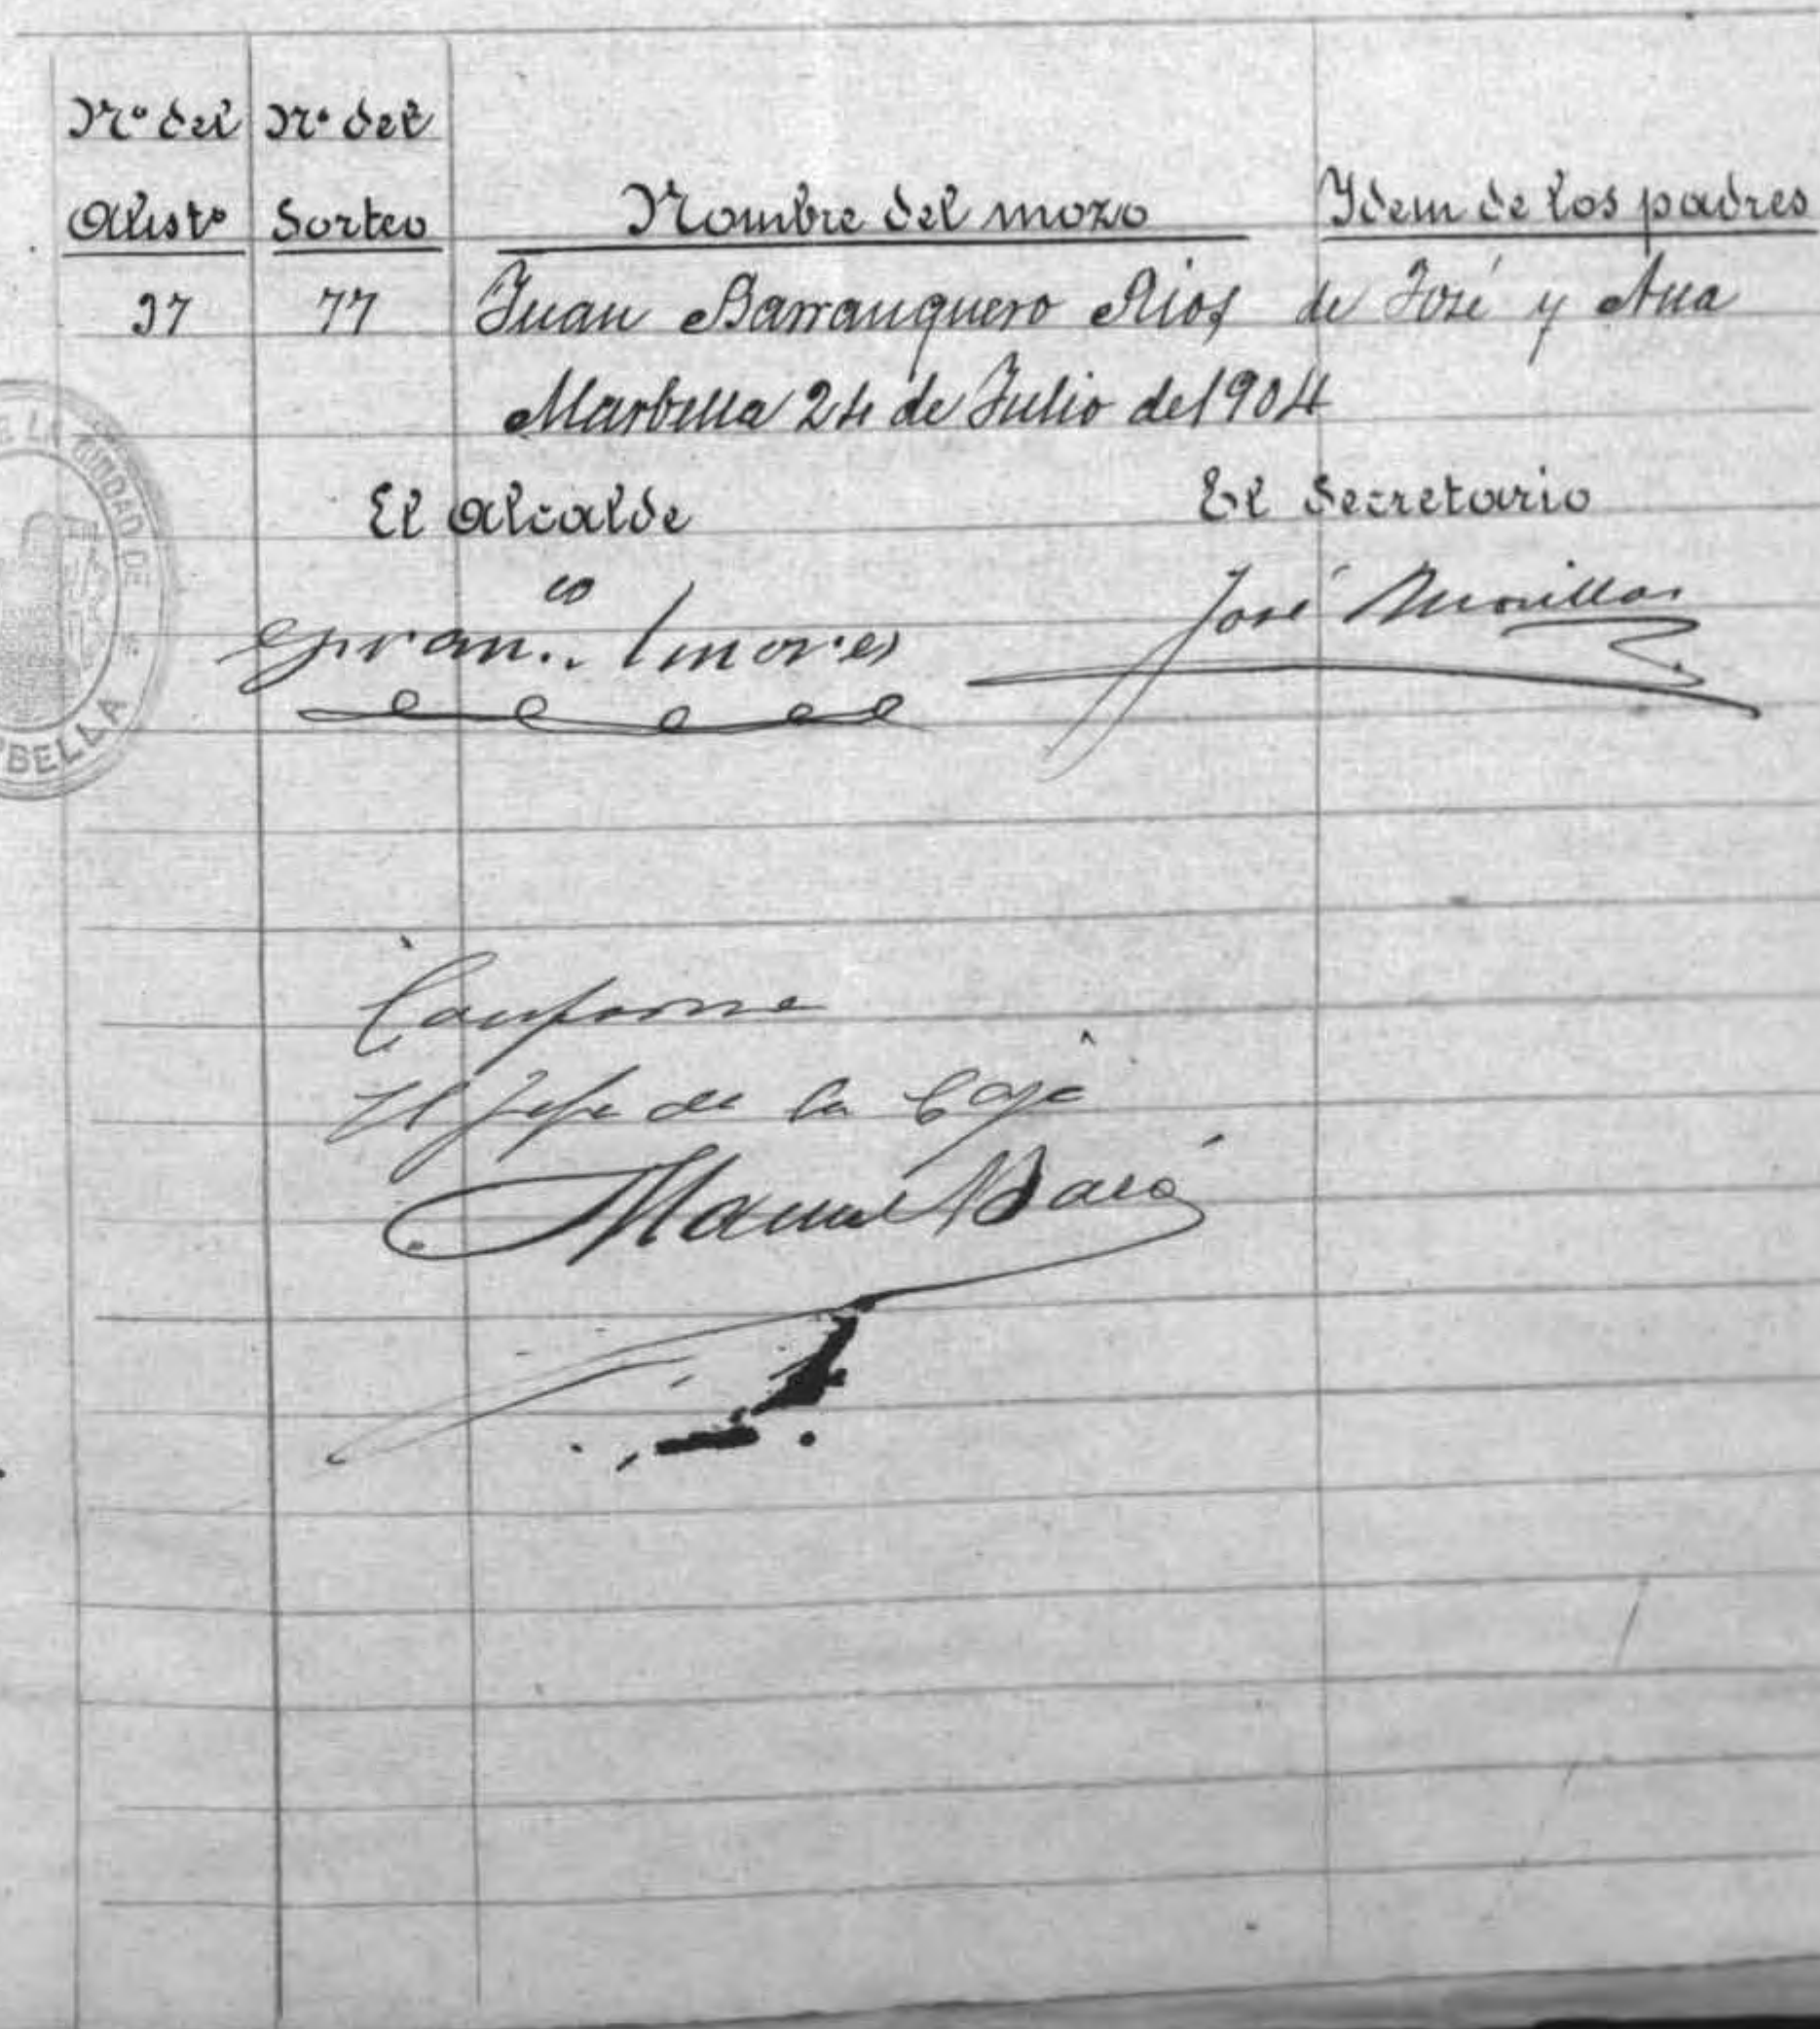 Nº del Nº del
Alistº Sorteo Nombre del mozo Idem de los padres
37 77 Juan Barranquero Rios de José y Ana
Marbella 24 de Julio de 1904
El Alcalde El Secretario
Franco José
Conforme
El Jefe de la Caja
Manuel
E LA CIUDAD DE
RBELLA